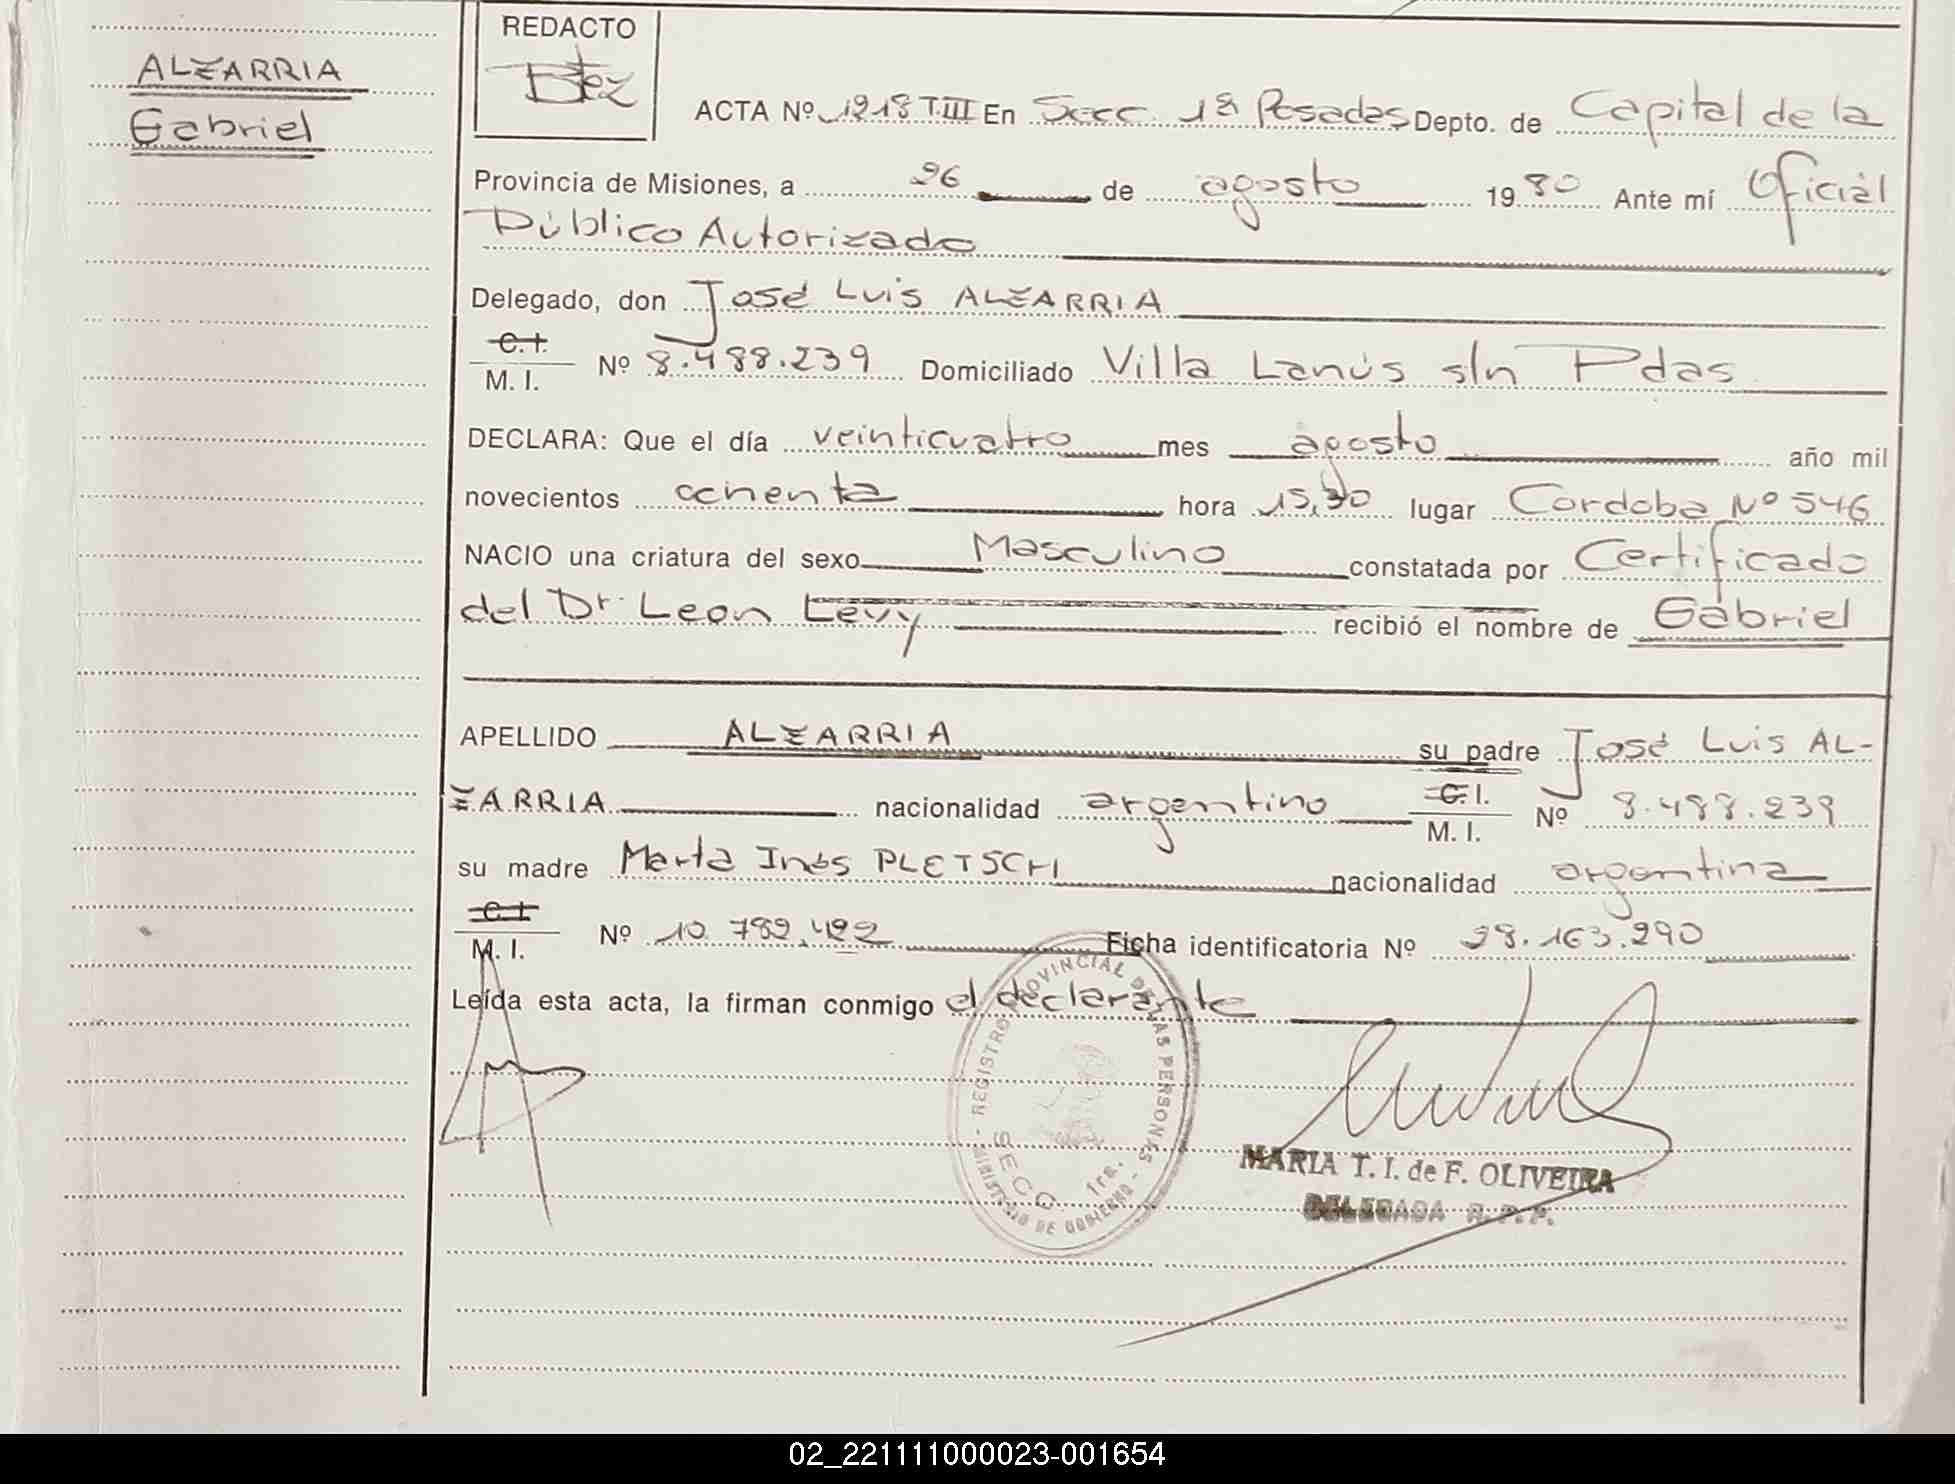 ALZARRIA
Gabriel
REDACTO
ACTA Nº 1218 T.III En Secc. 1ª Posadas Depto. de Capital de la
Provincia de Misiones, a 26 de agosto 1980 Ante mí Oficial
Público Autorizado
Delegado, don José Luis ALZARRIA
C.I.
M. I. Nº 8.488.239 Domiciliado Villa Lanús s/n Pdas
DECLARA: Que el día veinticuatro mes agosto año mil
novecientos ochenta hora 15,30 lugar Córdoba Nº 546
NACIO una criatura del sexo Masculino constatada por Certificado
del Dr. Leon Levy recibió el nombre de Gabriel
APELLIDO ALZARRIA su padre José Luis AL-
ZARRIA nacionalidad argentino C.I. M. I. Nº 8.488.239
su madre Marta Inés PLETSCH nacionalidad argentina
C.I.
M. I. Nº 10.789.422 Ficha identificatoria Nº 28.163.290
Leída esta acta, la firman conmigo el declarante
REGISTRO PROVINCIAL DE LAS PERSONAS
SECC. 1ra.
MINISTERIO DE GOBIERNO
MARIA T. I. de F. OLIVEIRA
DELEGADA R. P. P.
02_221111000023-001654